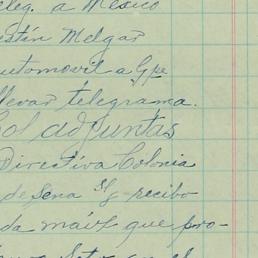 eleg. a Mexico
ustín Melgar
automovil a Gpe
llevar telegrama.
Col adjuntas
Directiva Colonia
de Sena recibo
da maíz que pro-